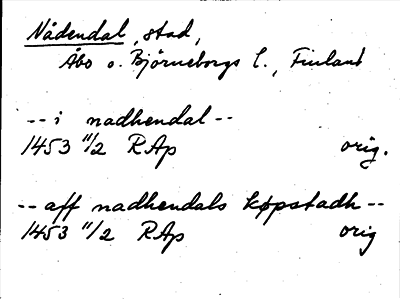 Nådendal, stad,
Åbo o. Björneborgs l., Finland
-- i nadhendal --
1453 11/2 RAp orig.
-- aff nadhendals køpstadh --
1453 11/2 RAp orig